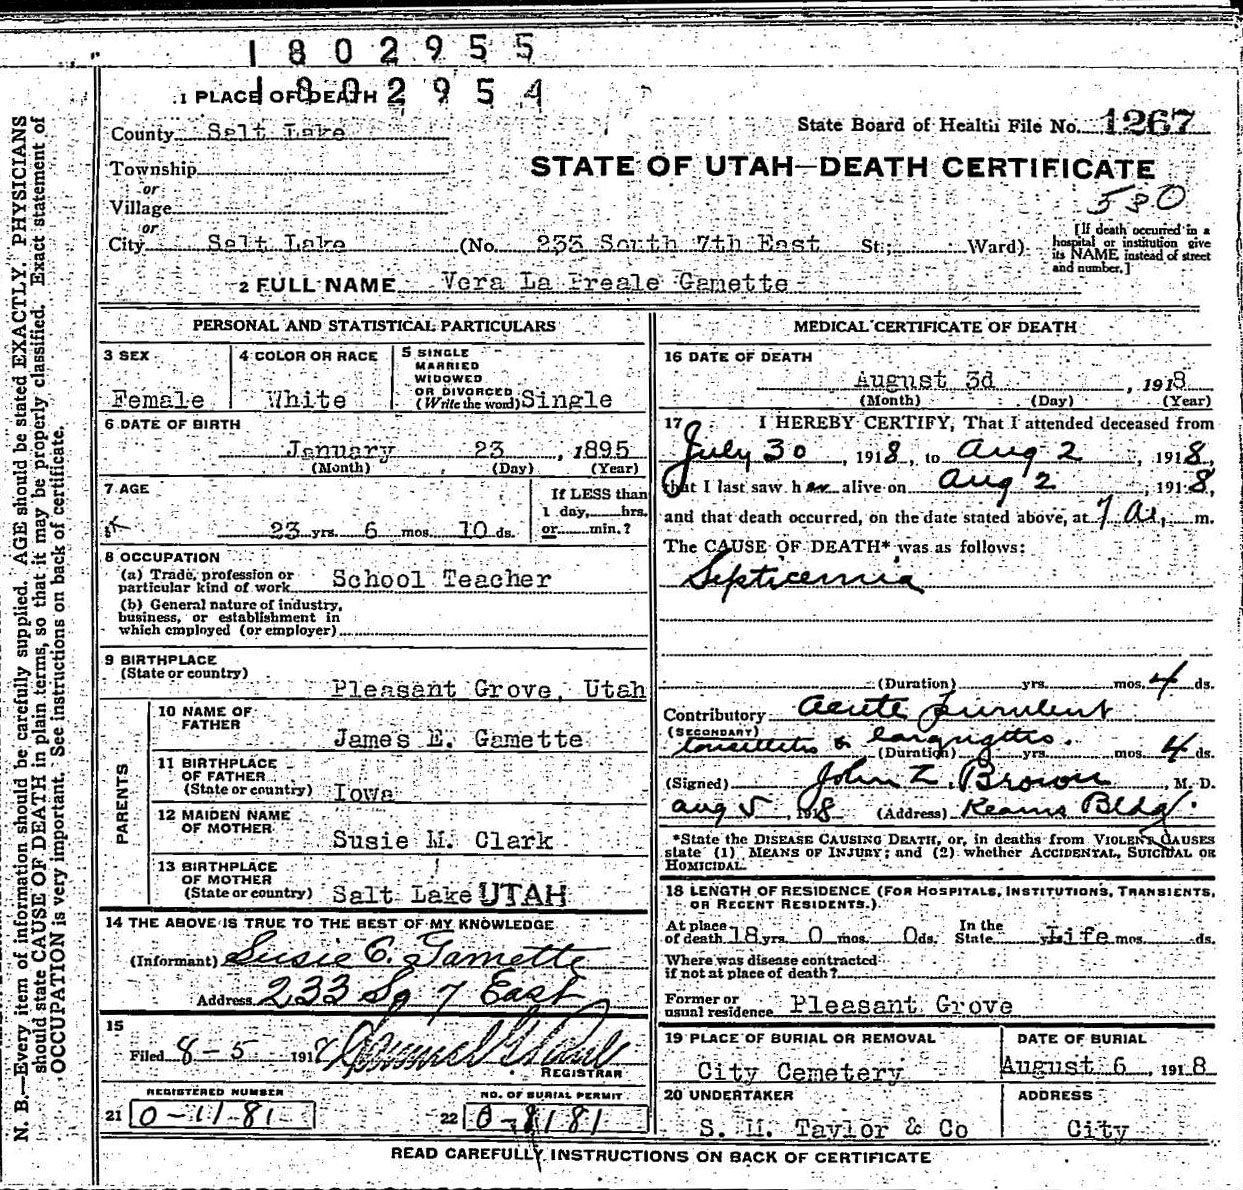 1802955
1802954
1 PLACE OF DEATH
County Salt Lake
State Board of Health File No. 1267
Township
STATE OF UTAH—DEATH CERTIFICATE
or
Village
530
or
City Salt Lake (No. 233 South 7th East St.; Ward)
[If death occurred in a hospital or institution give its NAME instead of street and number.]
2 FULL NAME Vera La Preale Gamette
PERSONAL AND STATISTICAL PARTICULARS
3 SEX
Female
4 COLOR OR RACE
White
5 SINGLE
MARRIED
WIDOWED
OR DIVORCED
(Write the word) Single
6 DATE OF BIRTH
January 23, 1895
(Month) (Day) (Year)
7 AGE
23 yrs. 6 mos. 10 ds.
If LESS than
1 day, hrs.
or min.?
8 OCCUPATION
(a) Trade, profession or
particular kind of work School Teacher
(b) General nature of industry,
business, or establishment in
which employed (or employer)
9 BIRTHPLACE
(State or country)
Pleasant Grove, Utah
PARENTS
10 NAME OF
FATHER
James E. Gamette
11 BIRTHPLACE
OF FATHER
(State or country) Iowa
12 MAIDEN NAME
OF MOTHER
Susie M. Clark
13 BIRTHPLACE
OF MOTHER
(State or country) Salt Lake UTAH
14 THE ABOVE IS TRUE TO THE BEST OF MY KNOWLEDGE
(Informant) Susie C. Gamette
Address 233 So 7 East
15
Filed 8-5 1918
REGISTRAR
REGISTERED NUMBER
21 0-1181
NO. OF BURIAL PERMIT
22 0-8181
MEDICAL CERTIFICATE OF DEATH
16 DATE OF DEATH
August 3d, 1918
(Month) (Day) (Year)
17 I HEREBY CERTIFY, That I attended deceased from
July 30, 1918, to Aug 2, 1918,
that I last saw her alive on Aug 2, 1918,
and that death occurred, on the date stated above, at 7 A., m.
The CAUSE OF DEATH* was as follows:
Septicemia
(Duration) yrs. mos. 4 ds.
Contributory Acute Purulent
(SECONDARY)
tonsillitis & laryngitis.
(Duration) yrs. mos. 4 ds.
(Signed) John Z. Brown, M. D.
Aug 5, 1918 (Address) Kearns Bldg.
*State the DISEASE CAUSING DEATH, or, in deaths from VIOLENT CAUSES
state (1) MEANS OF INJURY; and (2) whether ACCIDENTAL, SUICIDAL OR
HOMICIDAL.
18 LENGTH OF RESIDENCE (FOR HOSPITALS, INSTITUTIONS, TRANSIENTS,
OR RECENT RESIDENTS.)
At place
of death 18 yrs. 0 mos. 0 ds.
In the
State yrs. Life mos. ds.
Where was disease contracted
if not at place of death?
Former or
usual residence Pleasant Grove
19 PLACE OF BURIAL OR REMOVAL
City Cemetery
DATE OF BURIAL
August 6, 1918
20 UNDERTAKER
S. M. Taylor & Co
ADDRESS
City
READ CAREFULLY INSTRUCTIONS ON BACK OF CERTIFICATE
N. B.—Every item of information should be carefully supplied. AGE should be stated EXACTLY. PHYSICIANS
should state CAUSE OF DEATH in plain terms, so that it may be properly classified. Exact statement of
OCCUPATION is very important. See instructions on back of certificate.